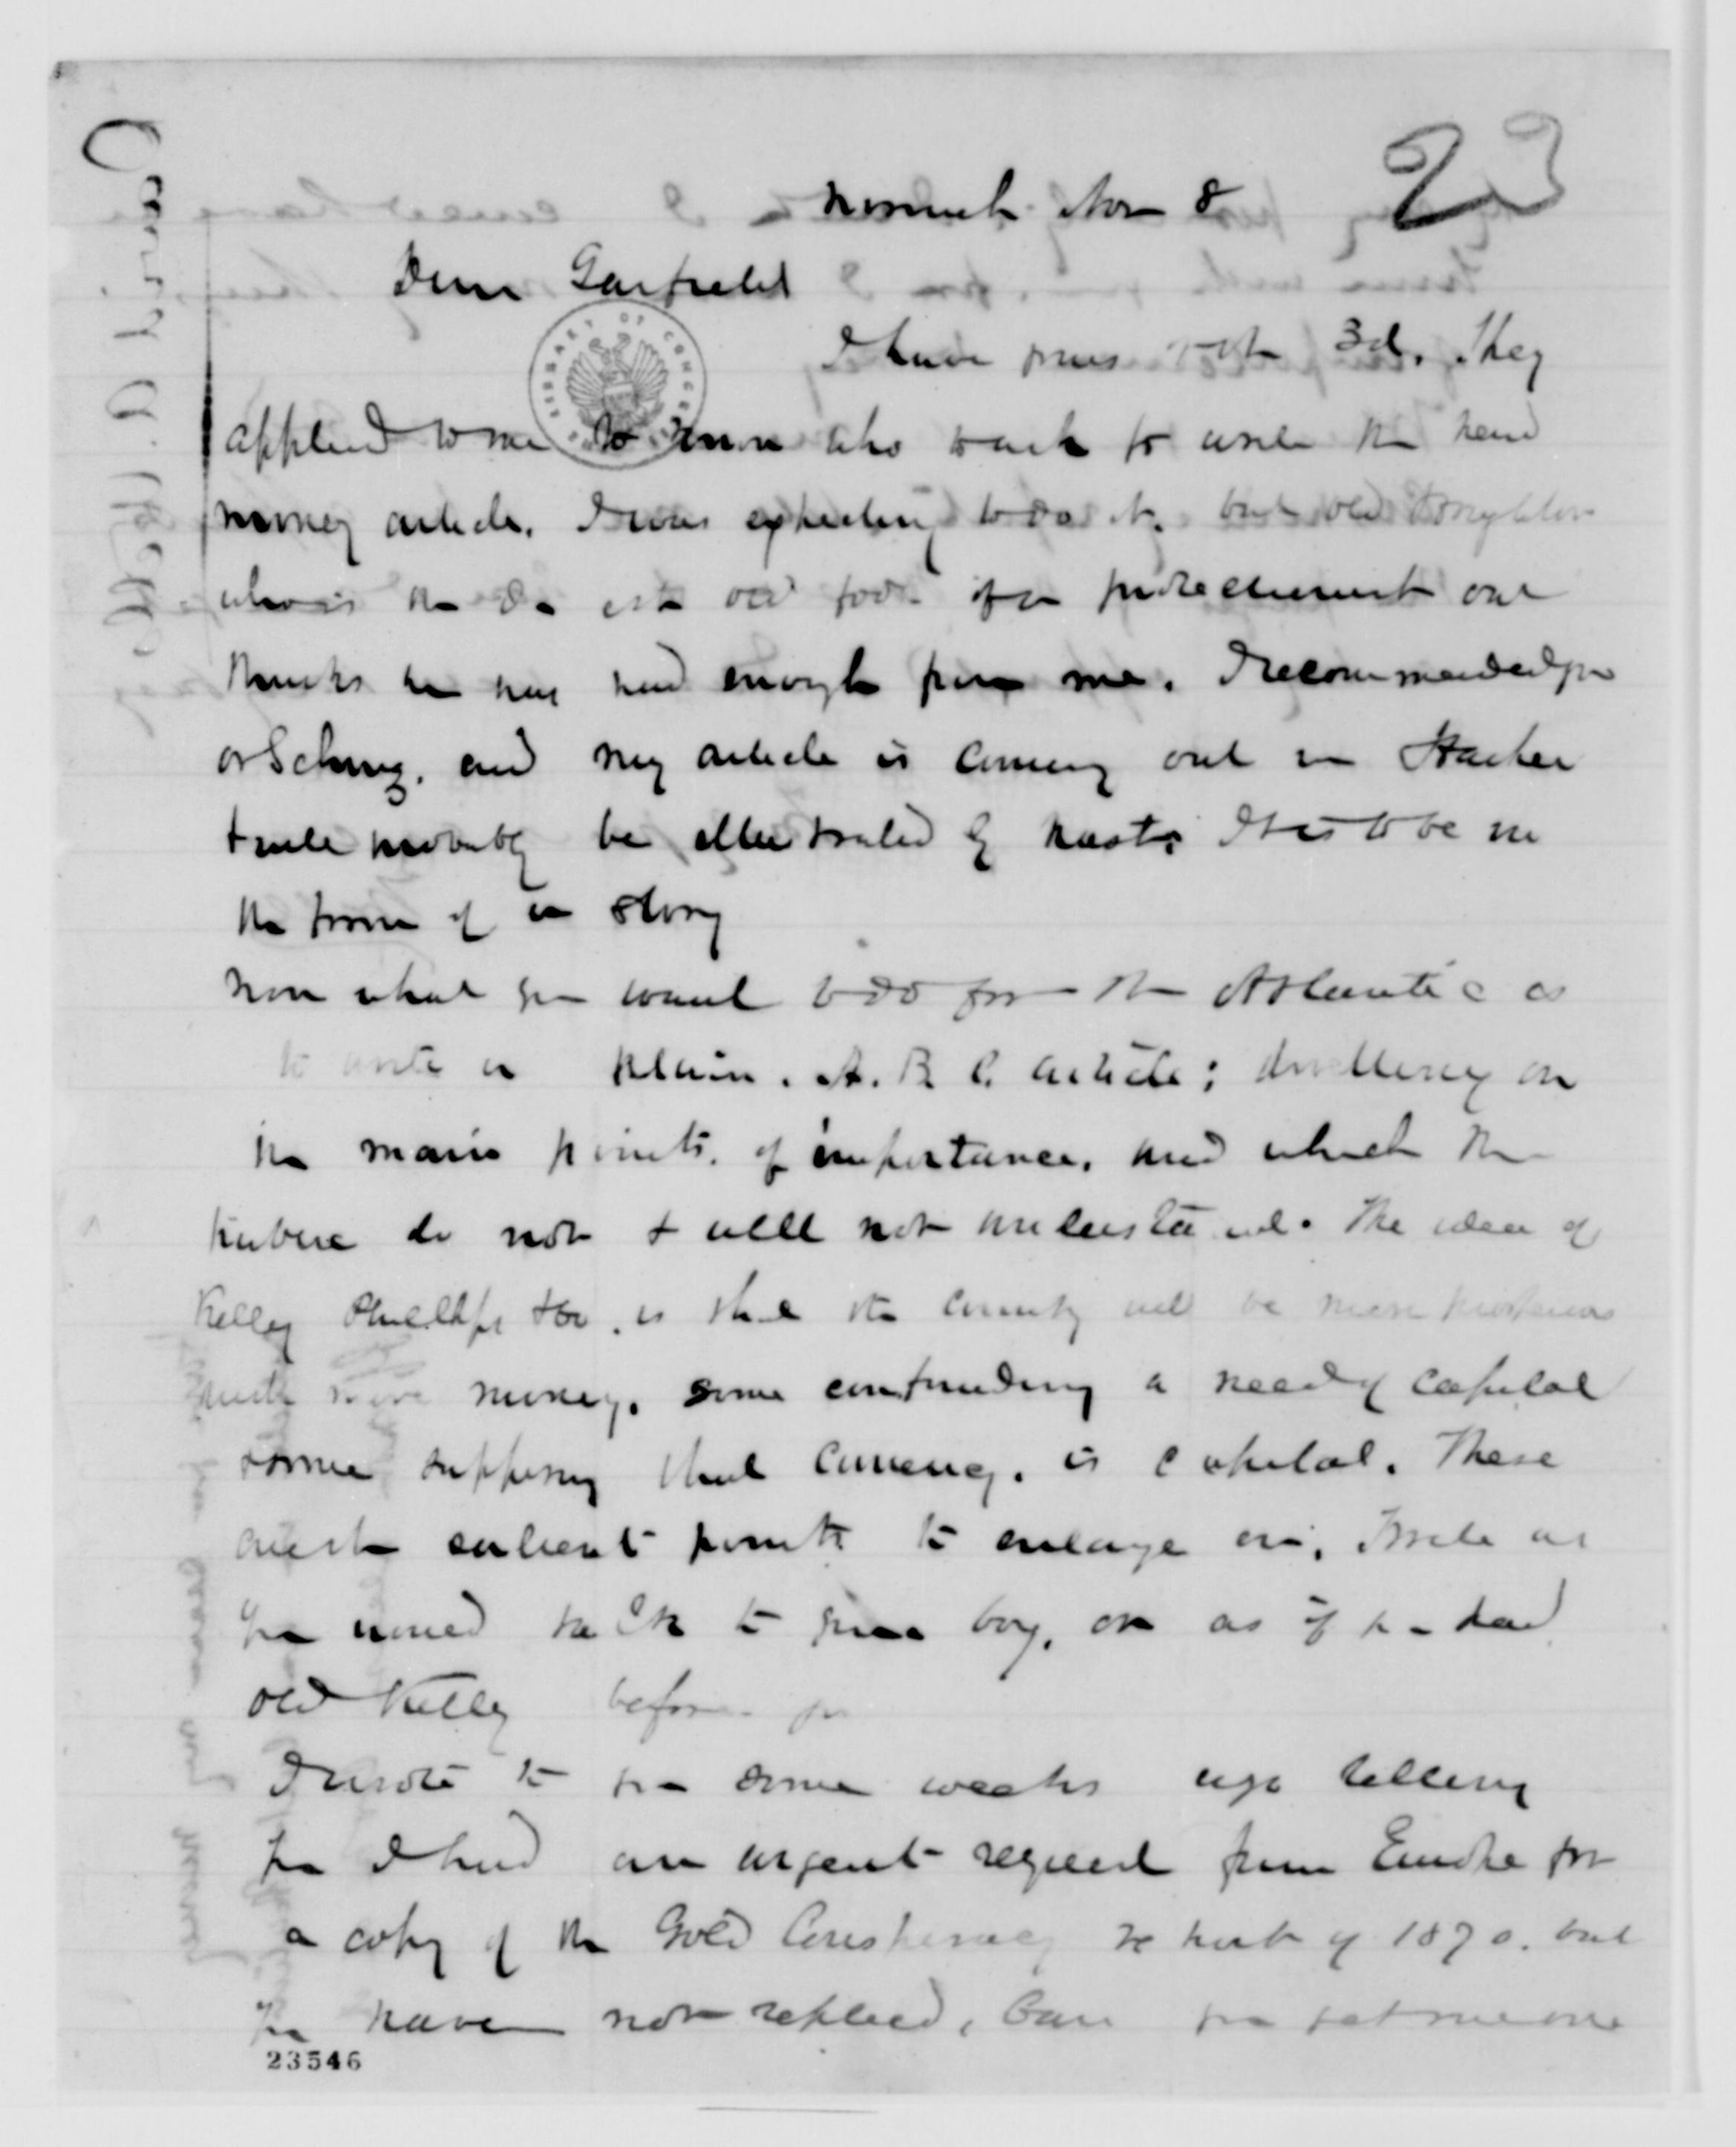 23
Norwich Nov 8
Dear Garfield
I have yours of the 3d. They
applied to me to know who was to write the hard
money article. I was expecting to do it, but old Houghton
who is the old of a protectionist
thinks he has had enough from me. I recommended you
or Schurz. and my article is coming out in Harper
& will probably be illustrated by Nast. It is to be in
the form of a story
Now what you want to do for the Atlantic is
to write a plain. A. B. C. article; dwelling on
the main points. of importance. and which the
people do not & will not understand. The idea of
Kelley Phillips &c. is that the country will be more prosperous
with more money. some confounding a need of capital
some supposing that currency. is capital. These
are the salient points to enlarge on. Write as
you would talk to your boy, or as if you had
old Kelley before you
I wrote to you some weeks ago telling
you I had an urgent request from Europe for
a copy of the Gold Conspiracy report of 1870. but
you have not replied, Can you get me one
23546
David A. Wells
LIBRARY OF CONGRESS